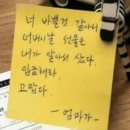 너 바쁠것 같아서
어버이날 선물은
내가 알아서 샀다.
입금해라.
고맙다.
- 엄마가 -